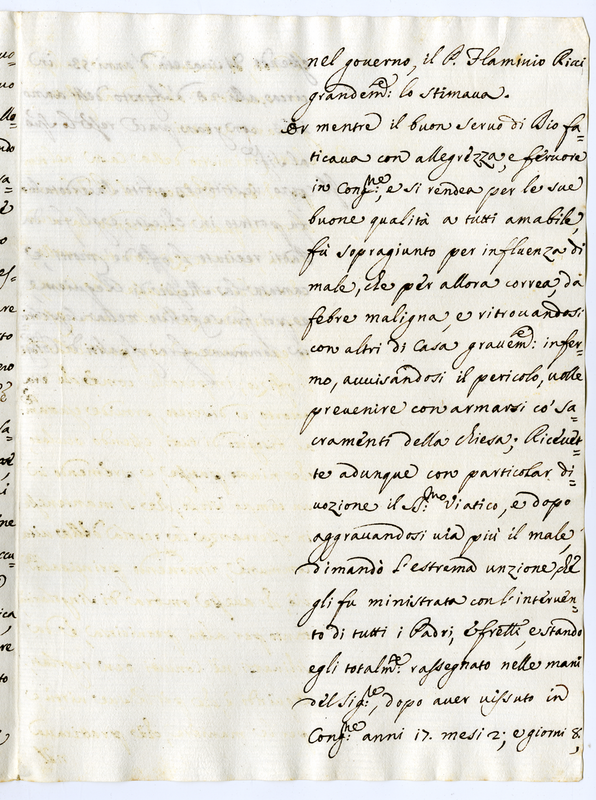 nel governo, il P. Flaminio Ricci
grandem.e lo stimava.
Or mentre il buon servo di Dio fa=
ticava con allegrezza, e fervore
in Cong.ne, e si rendea per le sue
buone qualità a tutti amabile,
fù sopragiunto per influenza di
male, che per allora correa, da
febre maligna, e ritrovandosi
con altri di Casa gravem.e: infer=
mo, avvisandosi il pericolo, volle
prevenire con armarsi co' Sa=
cramenti della chiesa; Ricevet=
te adunque con particolar di=
vozione il SS.mo Viatico, e dopo
aggravandosi via più il male,
dimandò l'estrema unzione che
gli fu ministrata con l'interven=
to di tutti i Padri, e fr̃elli, e stando
egli totalm.e: rassegnato nelle mani
del Sig.re, dopo aver vissuto in
Cong.ne anni 17. mesi 2; e giorni 8;